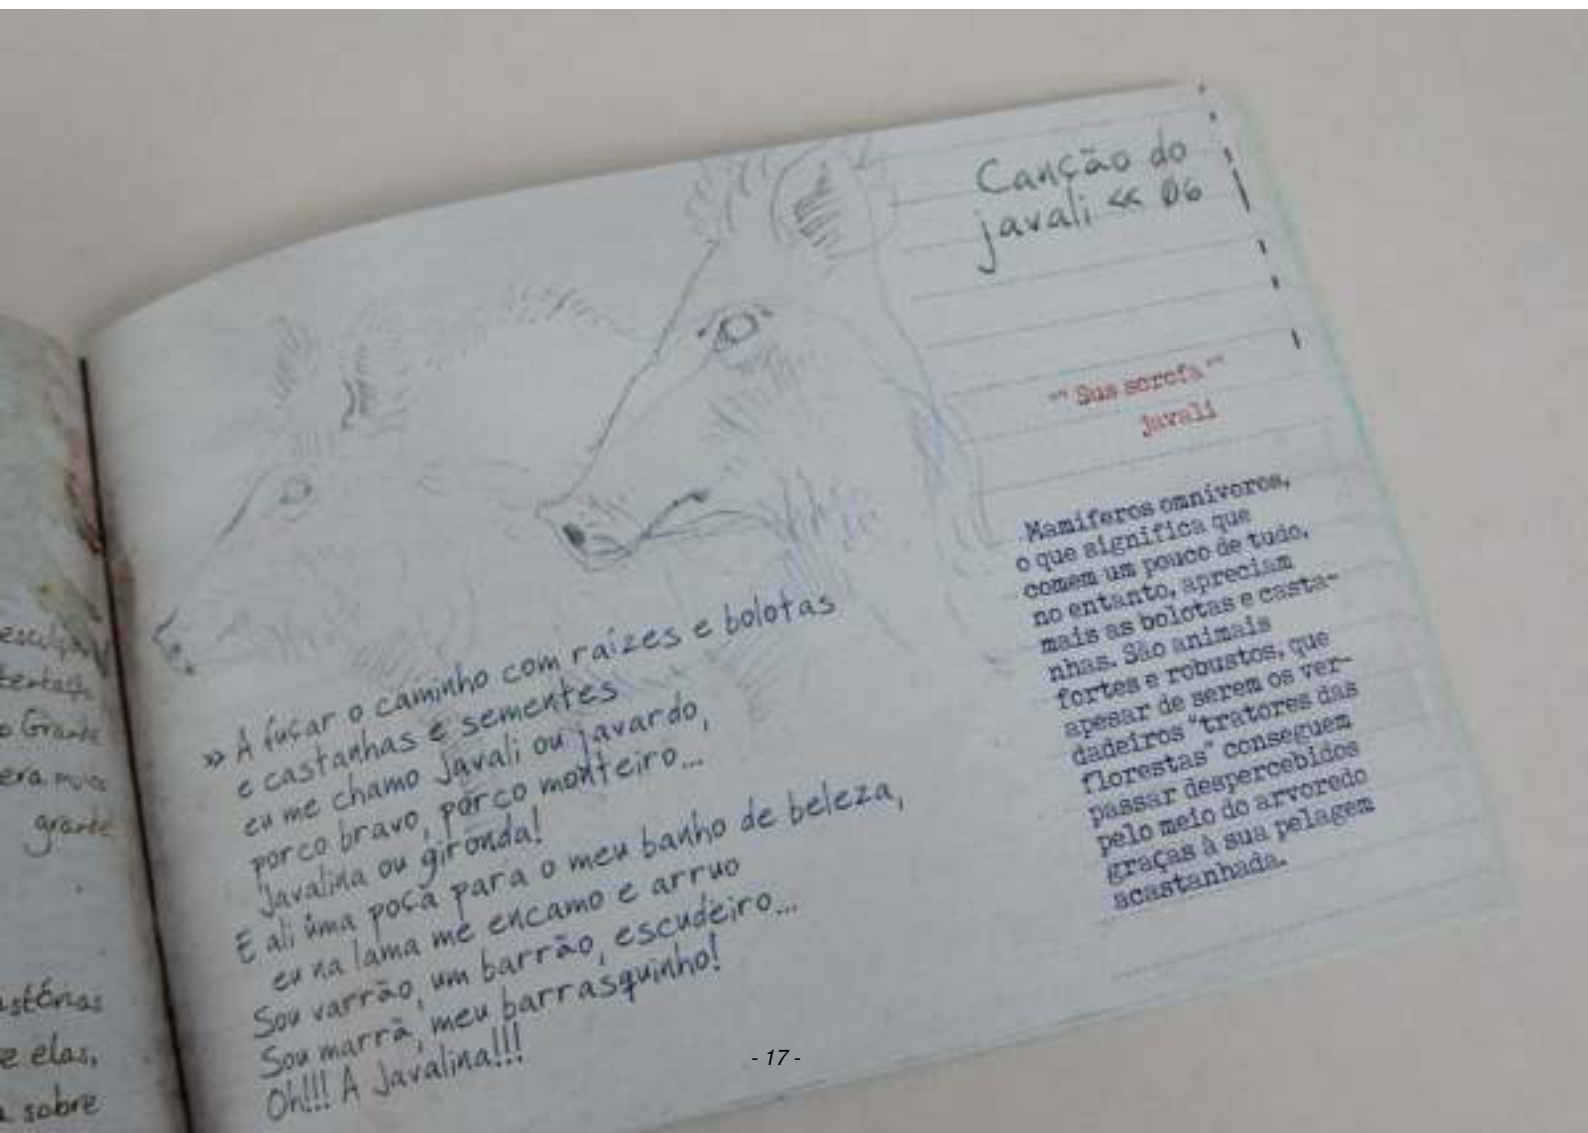 tentação
o Grante
era muito
grante
stórias
e elas,
sobre
Canção do
javali << 06
"" Sus scrofa ""
javali
Mamíferos omnívoros,
o que significa que
comem um pouco de tudo,
no entanto, apreciam
mais as bolotas e casta-
nhas. São animais
fortes e robustos, que
apesar de serem os ver-
dadeiros "tratores das
florestas" conseguem
passar despercebidos
pelo meio do arvoredo
graças à sua pelagem
acastanhada.
>> A fuçar o caminho com raízes e bolotas
e castanhas e sementes
eu me chamo javali ou javardo,
porco bravo, porco monteiro...
Javalina ou gironda!
E ali uma poça para o meu banho de beleza,
eu na lama me encamo e arruo
Sou varrão, um barrão, escudeiro...
Sou marrã, meu barrasquinho!
Oh!!! A Javalina!!!
- 17 -